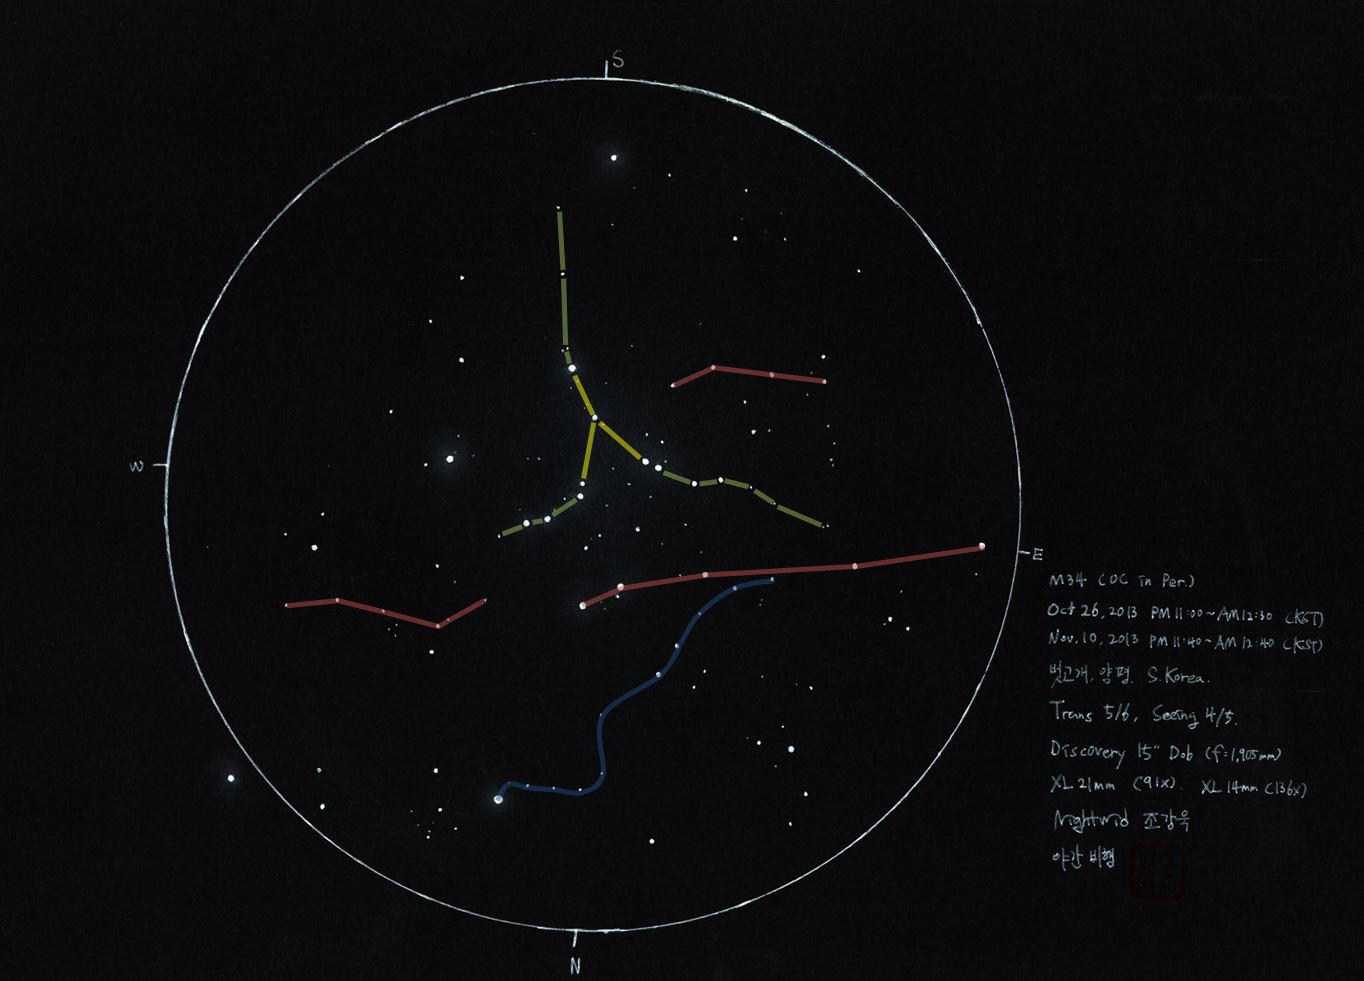 S
W
E
M34 (OC in Per.)
Oct 26, 2013 PM 11:00~AM 12:30 (KST)
Nov, 10, 2013 PM 11:40~AM 12:40 (KST)
벗고개, 양평. S.Korea.
Trans 5/6, Seeing 4/5.
Discovery 15" Dob (f=1,905mm)
XL 21mm (91x). XL 14mm (136x)
Nightwid 조강욱
야간 비행
N